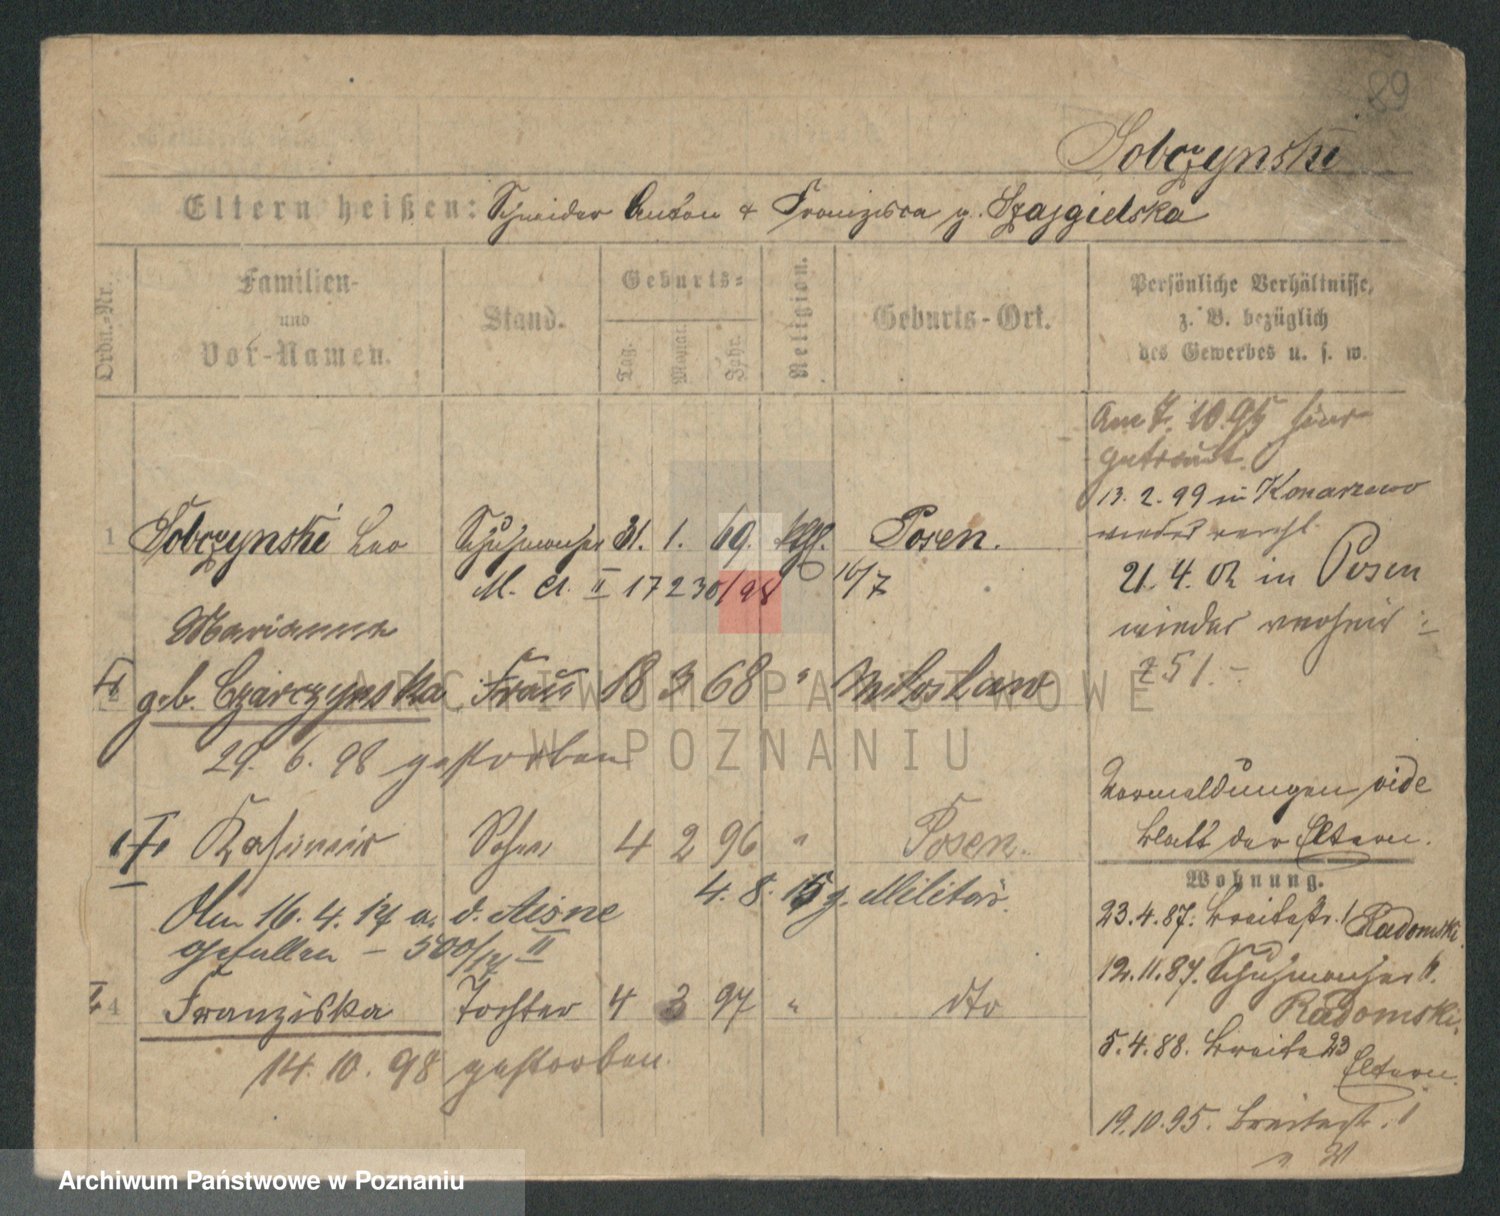 89
Sobczynski
Eltern heißen: Schneider Anton & Franziska g. Szajgielska
Ordn.-Nr.
Familien-
und
Vor-Namen.
Stand.
Geburts-
Tag.
Monat.
Jahr.
Religion.
Geburts-Ort.
Persönliche Verhältnisse,
z. B. bezüglich
des Gewerbes u. s. w.
Am 7. 10. 95 hier
getraut.
13. 2. 99 in Konarzewo
wieder verehl.
1 Sobczynski Leo Schuhmacher 31. 1. 69. kath. Posen.
M. A. II 17230/98 16/7
21. 4. 02 in Posen
wieder
251.-
Marianna
geb. Czarczynska Frau 18 3 68 " Miloslaw
29. 6. 98 gestorben
Kasimir Sohn 4 2 96 " Posen.
4. 8. 15 z. Militär.
Am 16. 4. 17 a. d. Aisne
gefallen – 500/17 II
4 Franziska Tochter 4 3 97 " dto
14. 10. 98 gestorben.
Vormeldungen vide
Blatt der Eltern.
Wohnung.
23. 4. 87. Breitestr. 1 Radomski.
12. 11. 87. Schuhmacherst.
Radomski.
5. 4. 88. Breite 23
Eltern.
19. 10. 95. Breitestr. 1
ARCHIWUM PAŃSTWOWE
W POZNANIU
Archiwum Państwowe w Poznaniu